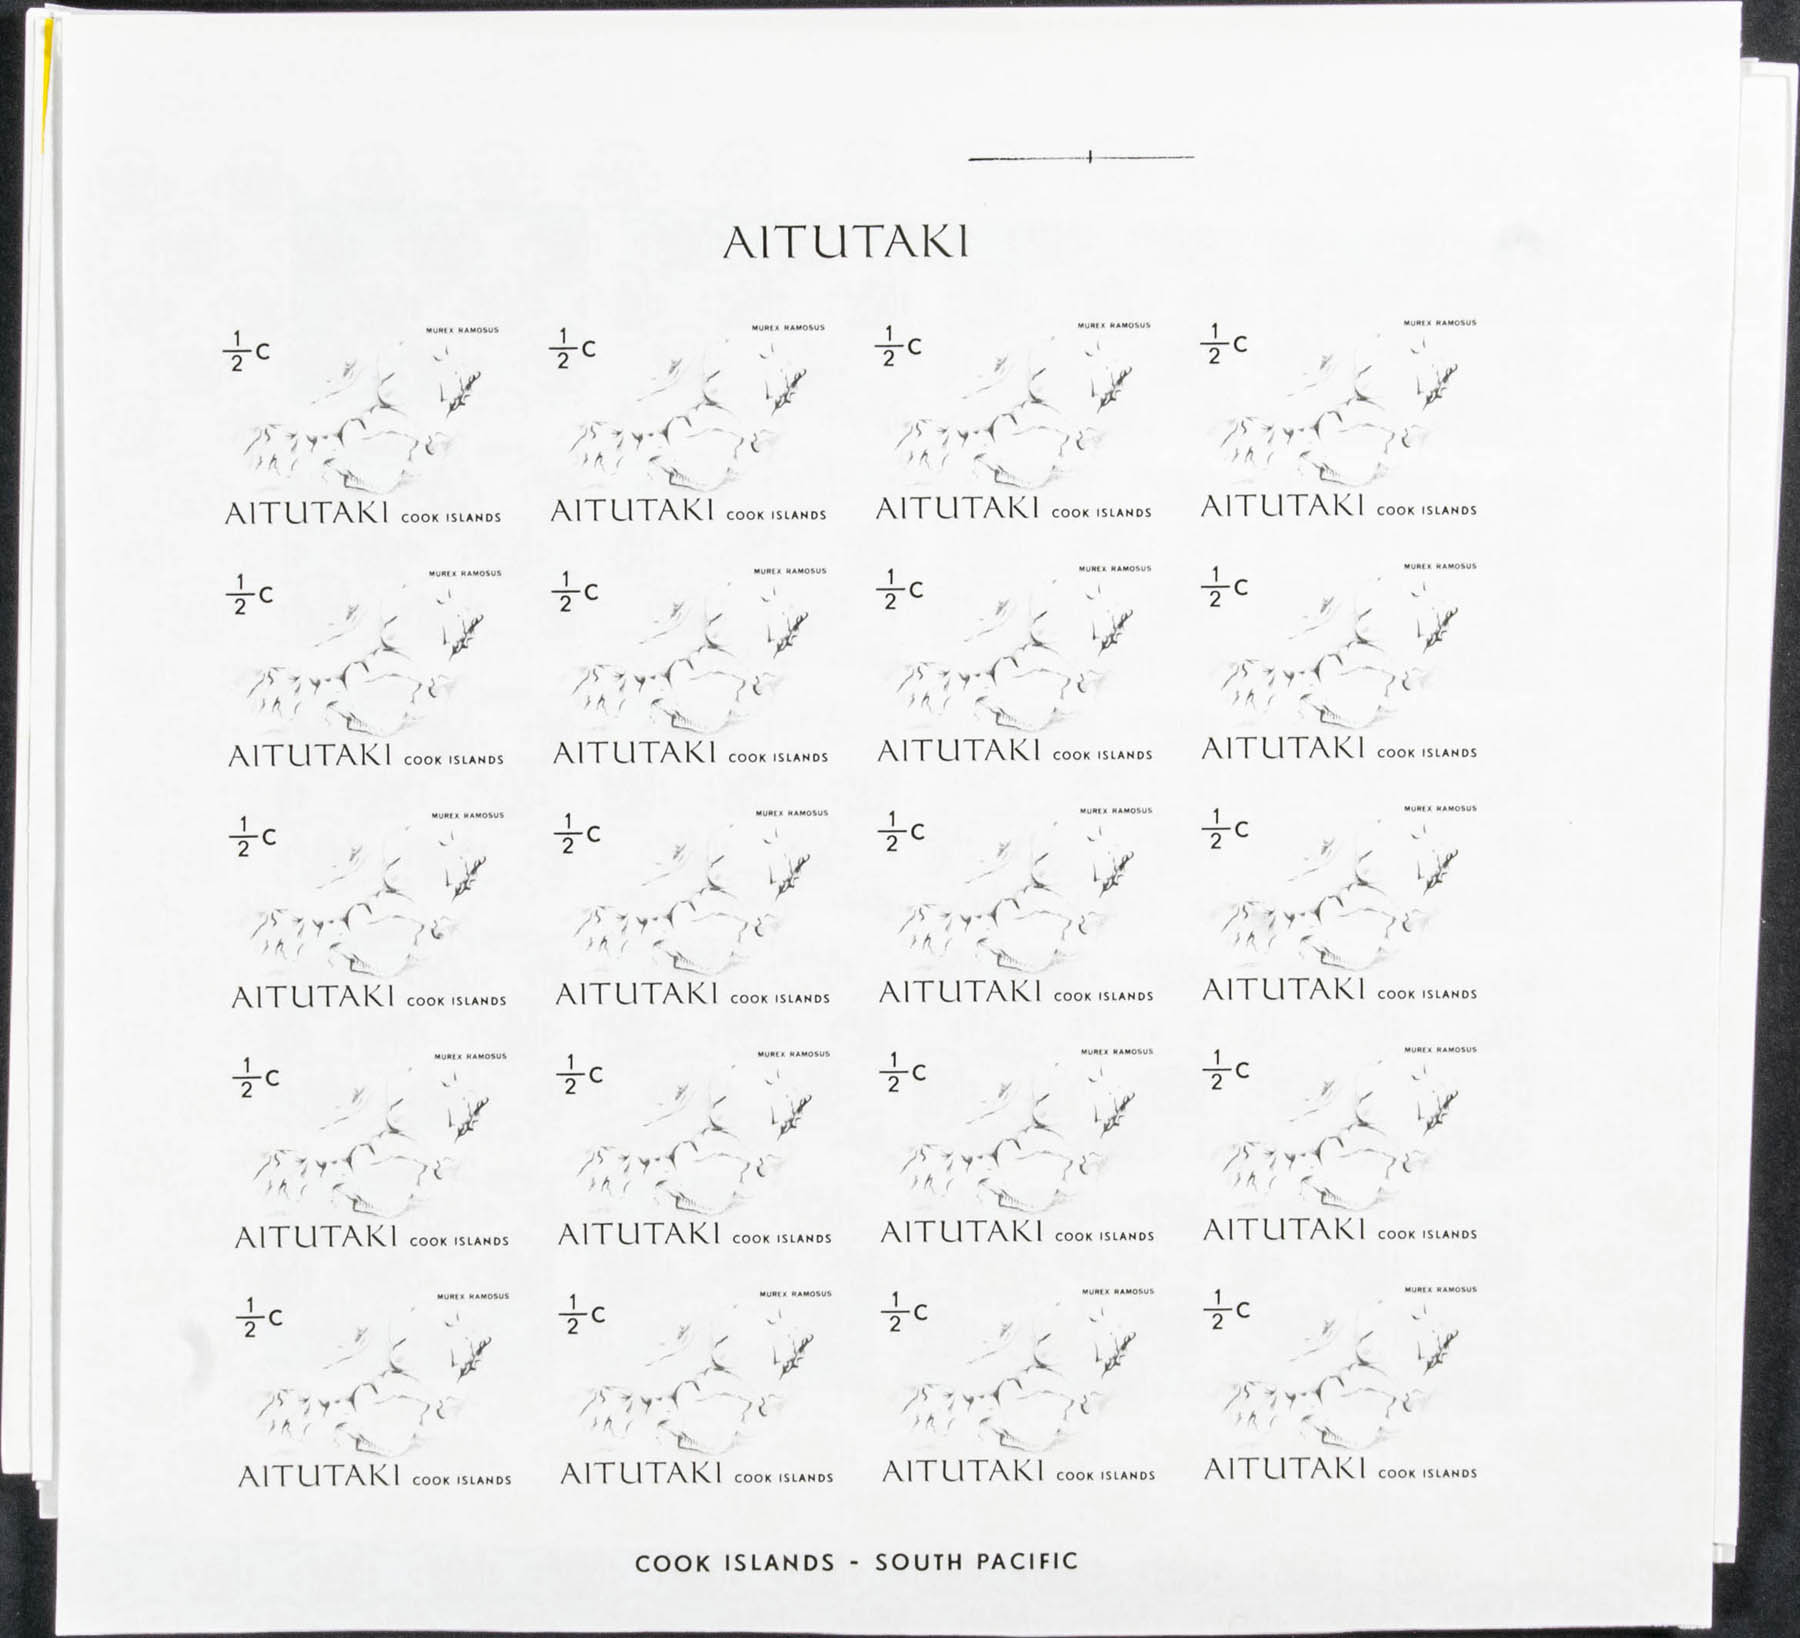 AITUTAKI
1/2 C MUREX RAMOSUS 1/2 C MUREX RAMOSUS 1/2 C MUREX RAMOSUS 1/2 C MUREX RAMOSUS
AITUTAKI COOK ISLANDS AITUTAKI COOK ISLANDS AITUTAKI COOK ISLANDS AITUTAKI COOK ISLANDS
1/2 C MUREX RAMOSUS 1/2 C MUREX RAMOSUS 1/2 C MUREX RAMOSUS 1/2 C MUREX RAMOSUS
AITUTAKI COOK ISLANDS AITUTAKI COOK ISLANDS AITUTAKI COOK ISLANDS AITUTAKI COOK ISLANDS
1/2 C MUREX RAMOSUS 1/2 C MUREX RAMOSUS 1/2 C MUREX RAMOSUS 1/2 C MUREX RAMOSUS
AITUTAKI COOK ISLANDS AITUTAKI COOK ISLANDS AITUTAKI COOK ISLANDS AITUTAKI COOK ISLANDS
1/2 C MUREX RAMOSUS 1/2 C MUREX RAMOSUS 1/2 C MUREX RAMOSUS 1/2 C MUREX RAMOSUS
AITUTAKI COOK ISLANDS AITUTAKI COOK ISLANDS AITUTAKI COOK ISLANDS AITUTAKI COOK ISLANDS
1/2 C MUREX RAMOSUS 1/2 C MUREX RAMOSUS 1/2 C MUREX RAMOSUS 1/2 C MUREX RAMOSUS
AITUTAKI COOK ISLANDS AITUTAKI COOK ISLANDS AITUTAKI COOK ISLANDS AITUTAKI COOK ISLANDS
COOK ISLANDS - SOUTH PACIFIC